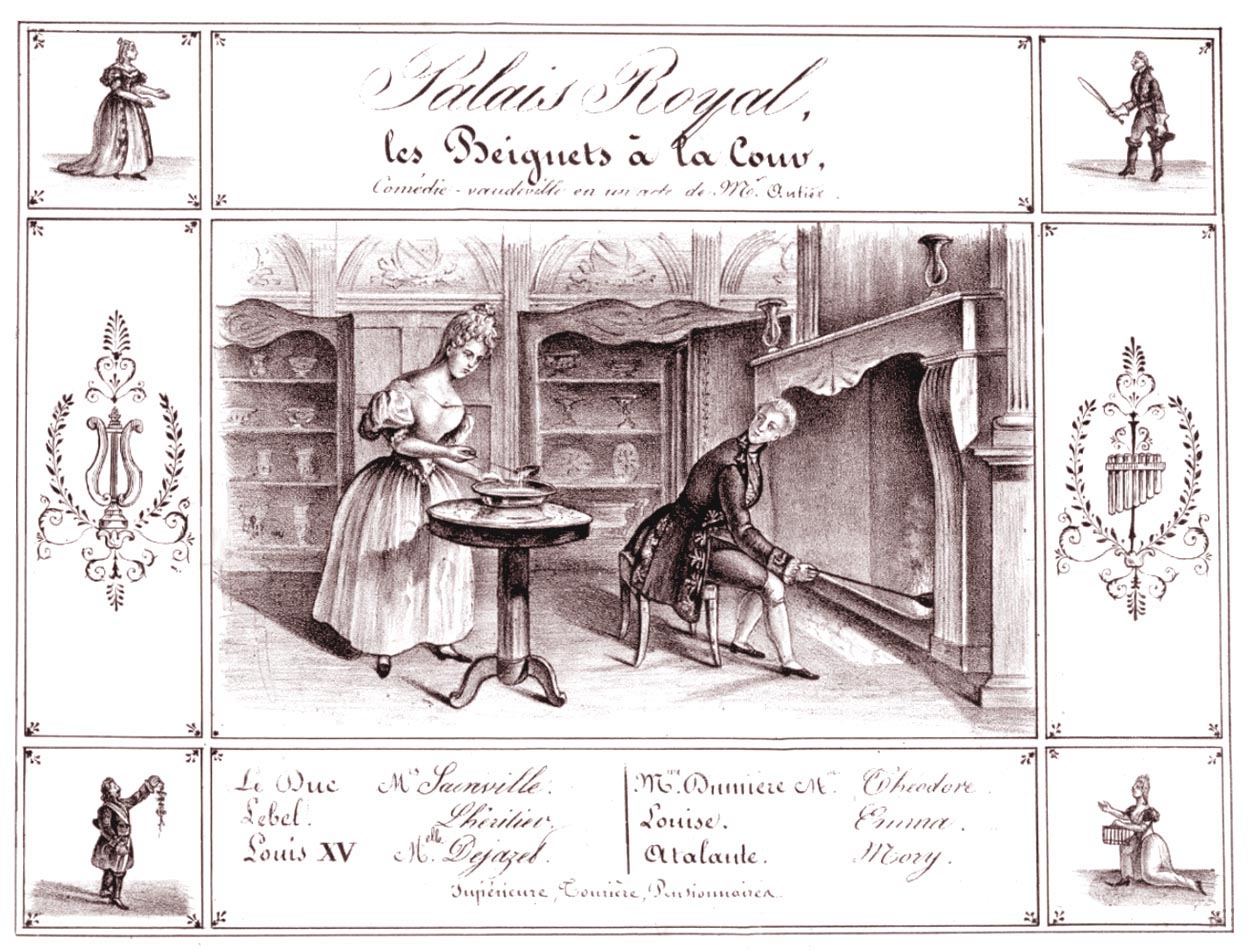 Palais Royal,
les Beignets à la Cour,
Comédie-vaudeville en un acte de Mr. Antier.
Le Duc Mr. Sainville.
Lebel. Lhéritier.
Louis XV Melle Dejazet.
Mme. Dumière Me. Théodore.
Louise. Emma.
Atalante. Mory.
Supérieure, Tourière, Pensionnaires